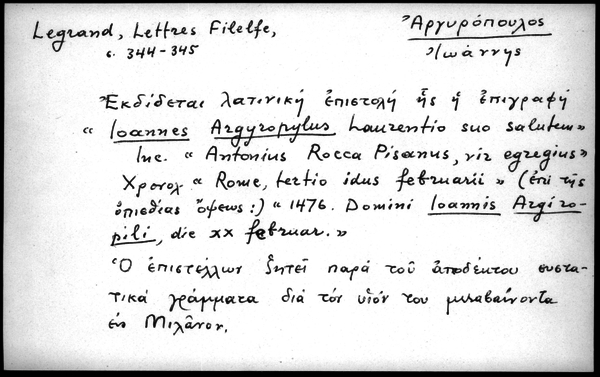 Legrand, Lettres Filelfe,
σ. 344-345
Ἀργυρόπουλος
Ἰωάννης
Ἐκδίδεται λατινικὴ ἐπιστολὴ ἧς ἡ ἐπιγραφὴ
« Ioannes Argyropylus Laurentio suo salutem»
Inc. « Antonius Rocca Pisanus, vir egregius»
Χρονολ « Rome, tertio idus februarii » (ἐπὶ τῆς
ὀπισθίας ὄψεως :) « 1476. Domini Ioannis Argiro-
pili, die xx februar. »
Ὁ ἐπιστέλλων ζητεῖ παρὰ τοῦ ἀποδέκτου συστα-
τικὰ γράμματα διὰ τὸν υἱόν του μεταβαίνοντα
εἰς Μιλᾶνον.